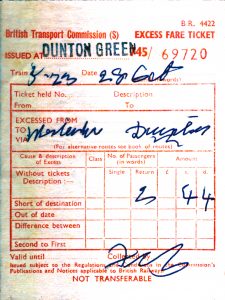 B R. 4422
British Transport Commission (S) EXCESS FARE TICKET
ISSUED AT DUNTON GREEN 45/ 69720
Train Date 23d Oct
(words)
Ticket held No. Description
From To
EXCESSED FROM
TO
VIA
(For alternative routes see book of routes)
Cause & description of Excess Class No. of Passengers (in words) Amount
Single Return £ s. d.
Without tickets
Description :—
2 4 4
Short of destination
Out of date
Difference between
Second to First
Valid until Collected by
Issued subject to the Regulations and Conditions in the Commission's
Publications and Notices applicable to British Railways
NOT TRANSFERABLE